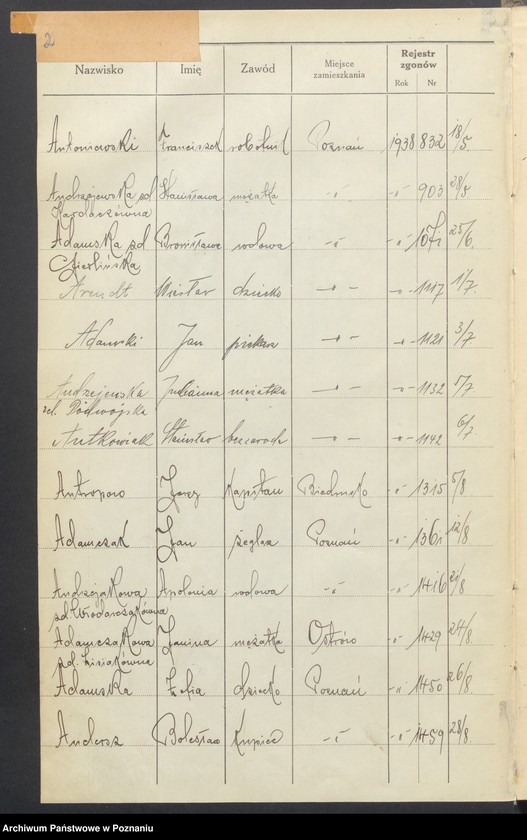 2
Rejestr zgonów
Nazwisko Imię Zawód Miejsce zamieszkania Rok Nr
Antoniewski Franciszek robotnik Poznań 1938 832 18/5
Andrzejewska zd Stanisława mężatka -"- -"- 903 28/5
Kardaczówna
Adamska zd Bronisława wdowa -"- -"- 25/6
Cierlińska
Arendt Wiesław dziecko -"- -"- 1117 1/7
Adamski Jan piekarz -"- -"- 1121 3/7
Andrzejewska Julianna mężatka -"- -"- 1132 5/7
zd. Podwojska
Antkowiak Stanisław bez zawodu -"- -"- 1142 6/7
Antropow Jerzy Kapitan Biedrusko -"- 1315 5/8
Adamczak Jan żeglarz Poznań -"- 12/8
Andrzejakowa Apolonia wdowa -"- -"- 1416 21/8
zd. Włodarczakówna
Adamczakowa Janina mężatka Ostrów -"- 1429 24/8
zd. Lisiakówna
Adamska Zofia dziecko Poznań -"- 1450 26/8
Andersz Bolesław Kupiec -"- -"- 1459 28/8
Archiwum Państwowe w Poznaniu